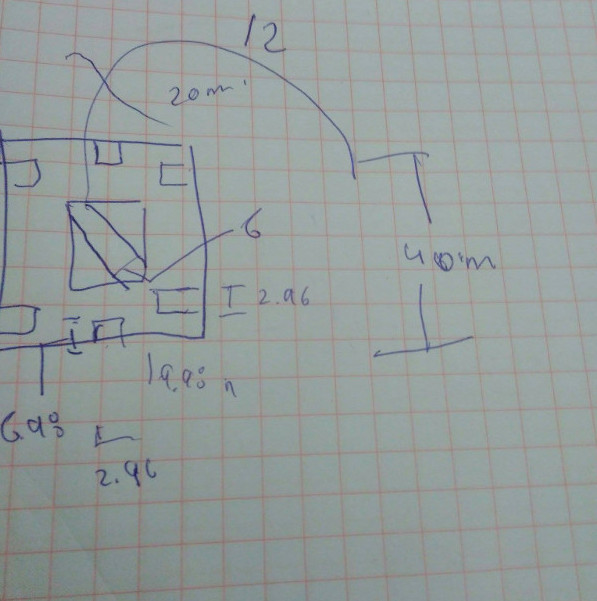 12
20m
6
40m
2.96
19.98 n
6.98
2.96